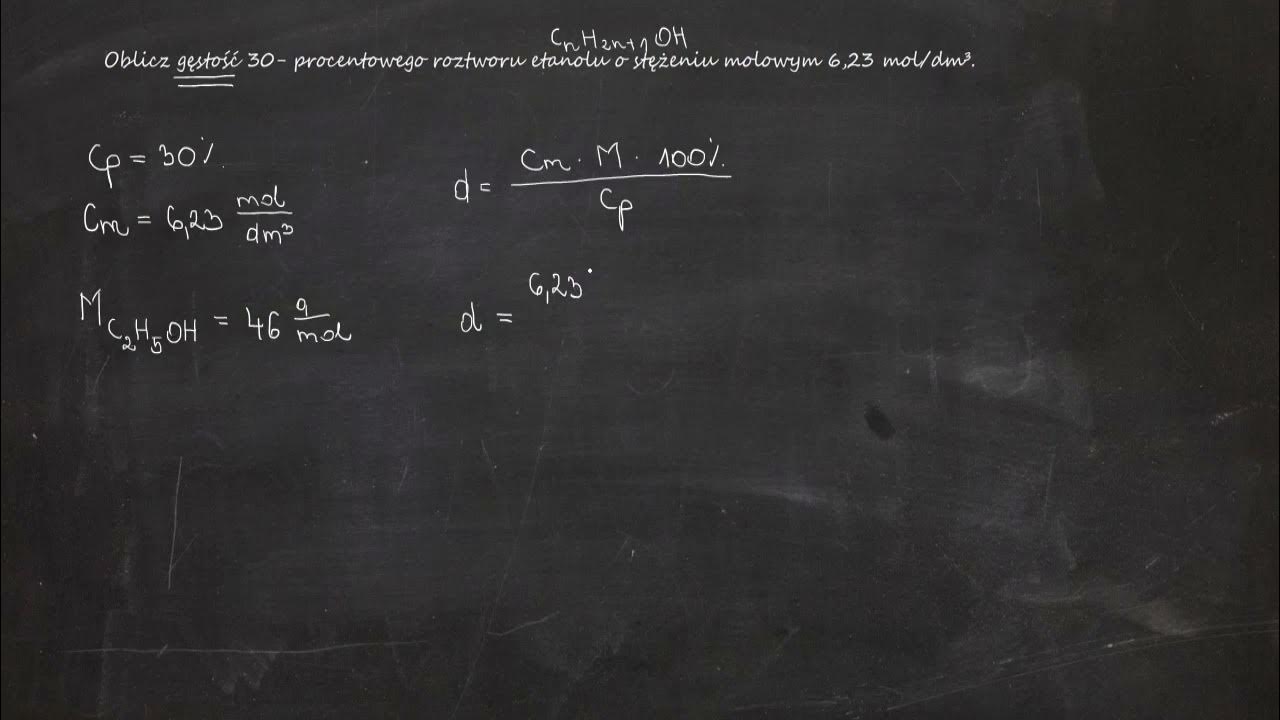 CnH2n+1OH
Oblicz gęstość 30- procentowego roztworu etanolu o stężeniu molowym 6,23 mol/dm³.
Cp = 30%
Cm = 6,23 mol/dm³
d = Cm · M · 100% / Cp
M C2H5OH = 46 g/mol
d = 6,23 ·